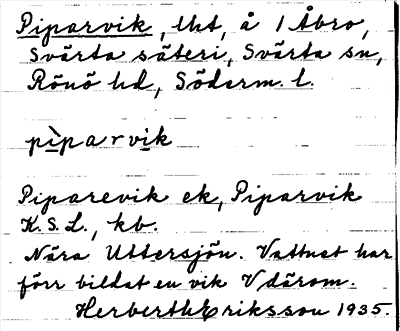 Piparvik, lht, å 1 Åbro,
Svärta säteri, Svärta sn,
Rönö hd, Söderm. l.
pìparvik
Piparevik ek, Piparvik
K.S.L., kb.
Nära Uttersjön. Vattnet har
förr bildat en vik V därom.
Herberth Eriksson 1935.